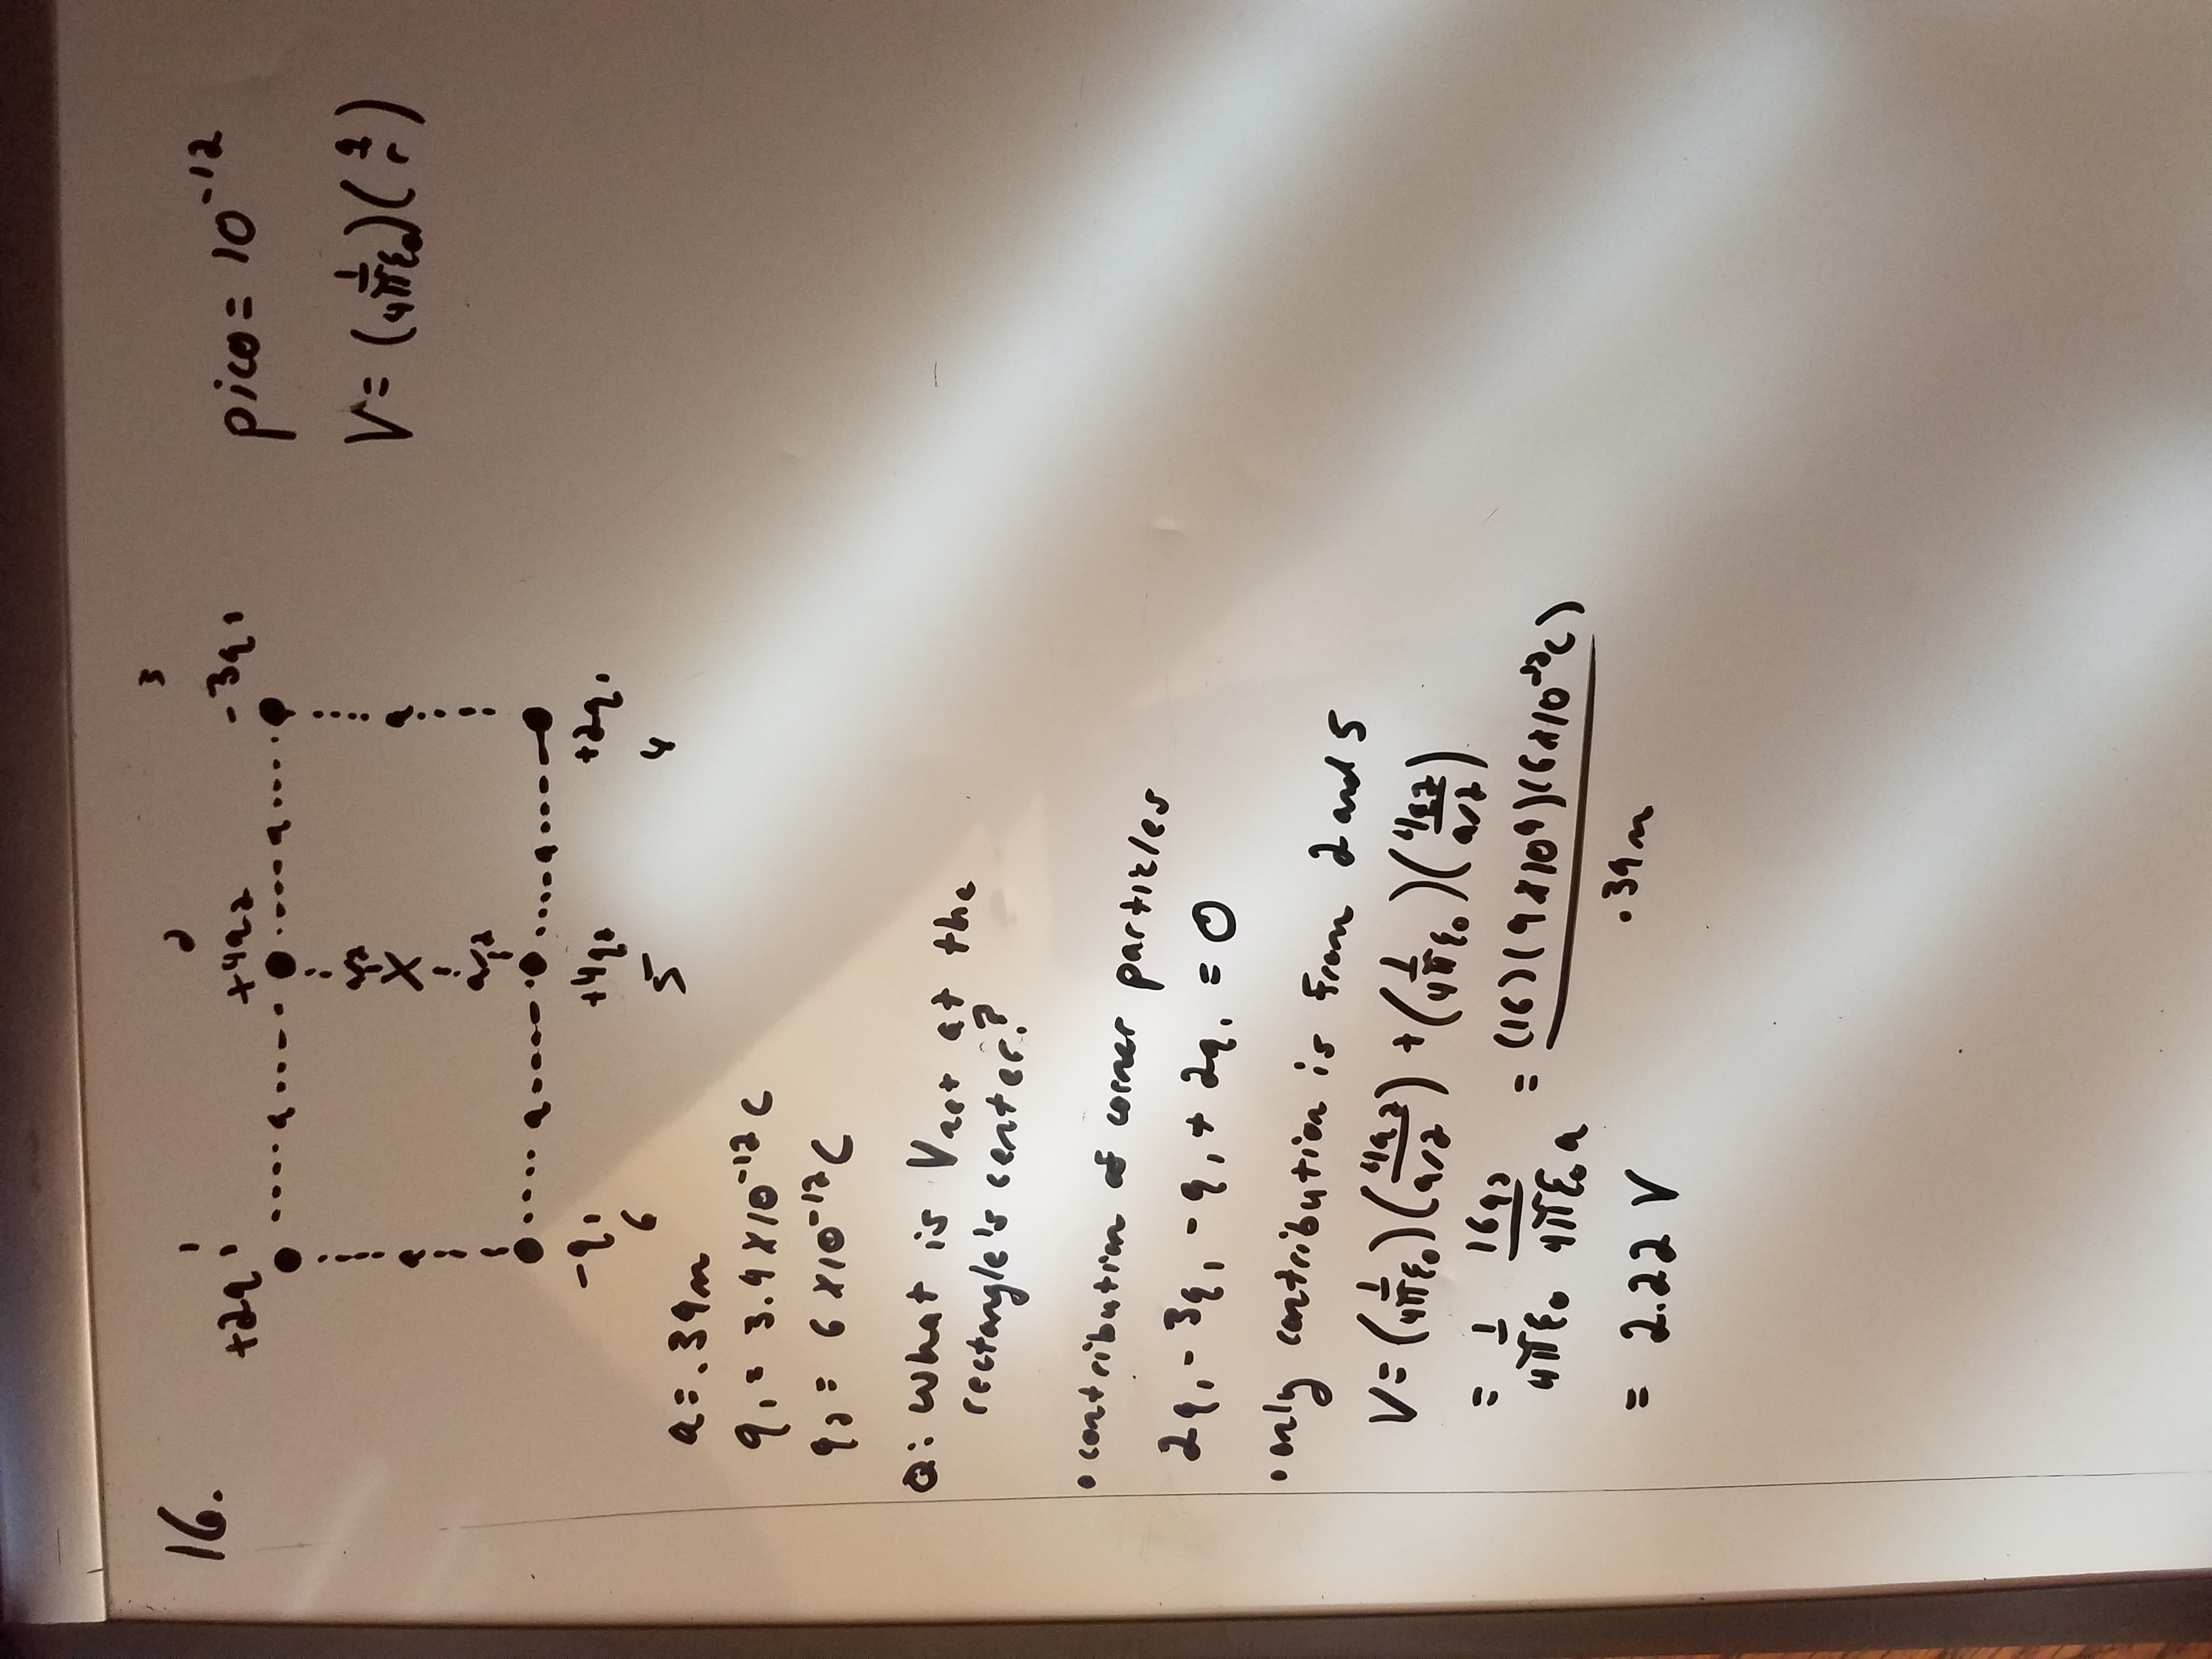 16.
1 2 3
+2q1 +4q2 -3q1
a a
a a/2 a
X
a/2
a a
-q1 +4q2 +2q1
6 5 4
pico = 10^-12
V = (1/4πε0)(q/r)
a = .39m
q1 = 3.4 x 10^-12 C
q2 = 6 x 10^-12 C
Q: what is Vnet at the
rectangle's center?
• contribution of corner particles
2q1 - 3q1 - q1 + 2q1 = 0
• only contribution is from 2 and 5
V = (1/4πε0)(4q2/a/2) + (1/4πε0)(4q2/a/2)
= 1/4πε0 16q2/4πε0a = (16)(9x10^9)(6x10^-12C)/.39m
= 2.22 V